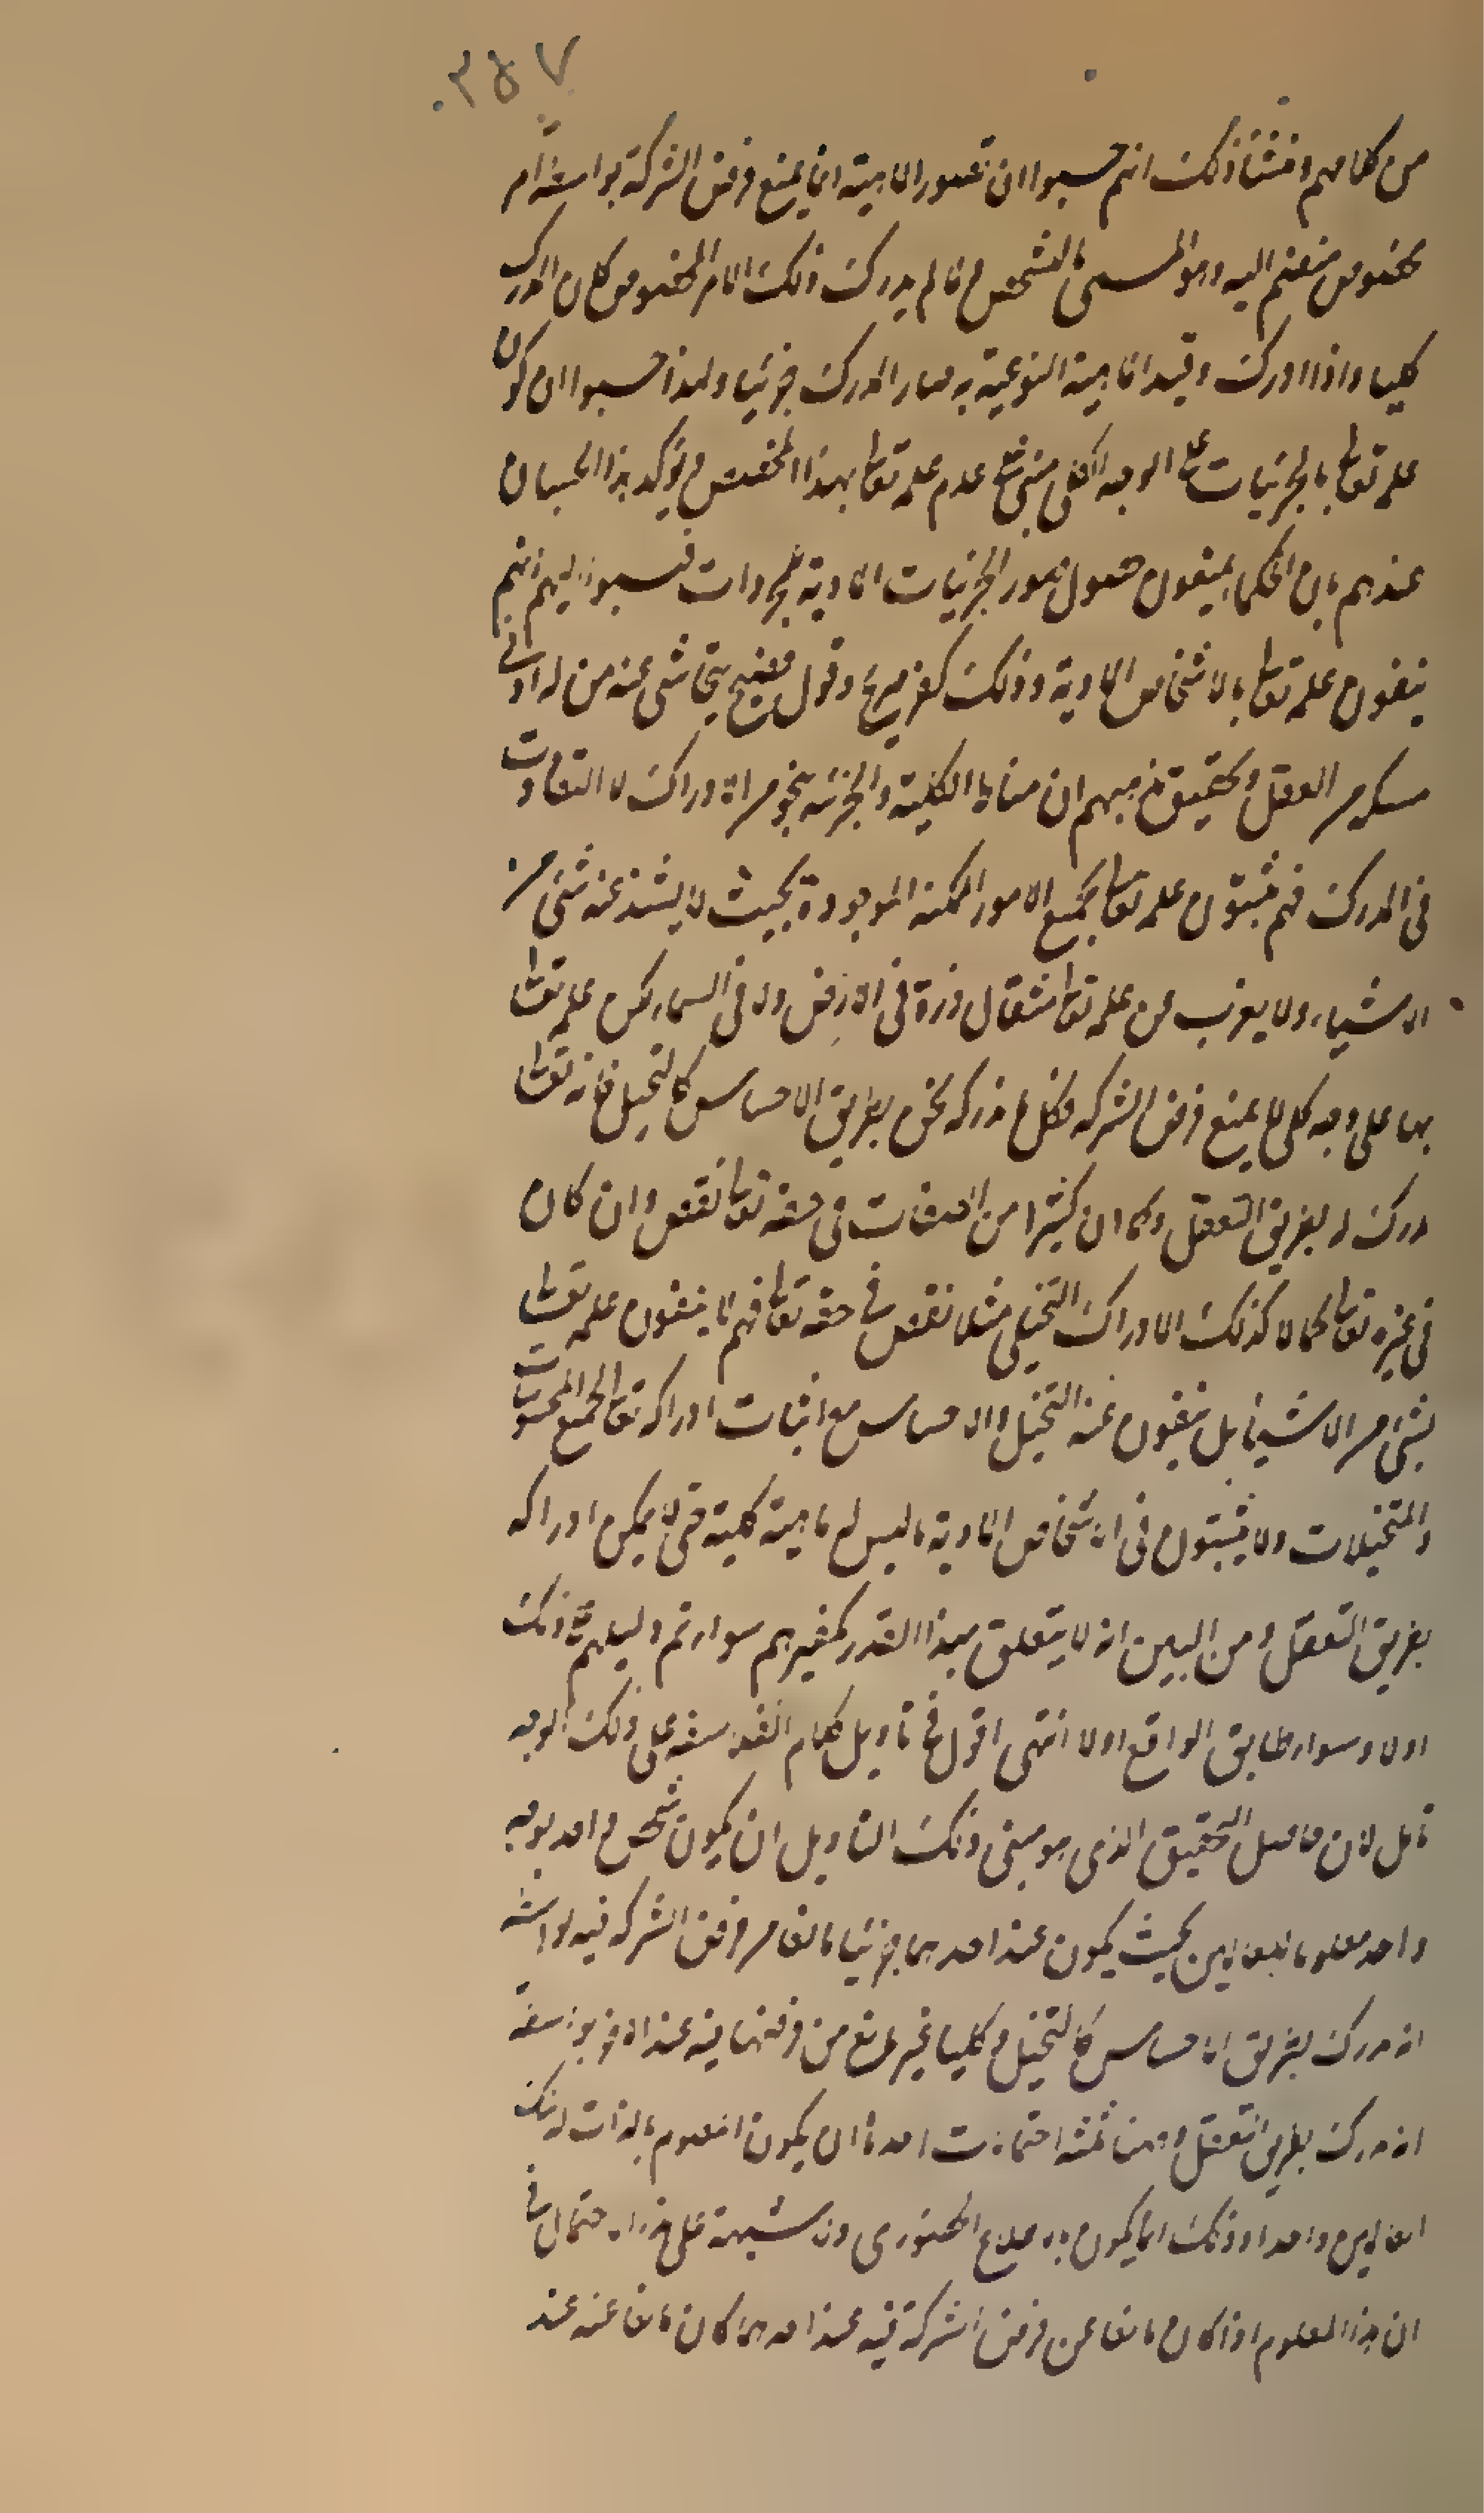 ٣٥٧
من كلامهم ومنشأ ذلك انهم حسبوا ان تصور الماهية انما يمنع فرض الشركة بواسطة امر
مخصوص منضم اليه وهو المسمى بالتشخص فما لم يدرك ذلك الامر المخصوص كان المدرك
كليا واذا ادرك وقيد الماهية النوعية به صار المدرك جزئيا ولهذا حسبوا ان كون
علمه تعالى بالجزئيات على الوجه الكلى مبنى على عدم علمه تعالى بهذا المخصص وتوكد هذا الحسبان
عندهم بان الحكماء ينفون حصول صور الجزئيات المادية للمجردات فنسبوا اليهم انهم
ينفون علمه تعالى بالاشخاص المادية وذلك كفر صريح وقول فضيح يتحاشى عنه من له ادنى
مسكة من العقل وتحقيق مذهبهم ان مناط الكلية والجزئية نحو من الادراك لا التفاوت
فى المدرك فهم يثبتون علمه تعالى بجميع الامور الممكنة الموجودة بحيث لا يشذ عنه شئ من
الاشياء ولا يعزب عن علمه تعالى مثقال ذرة فى الارض ولا فى السماء لكن علمه تعالى
بها على وجه كلى لا يمنع فرض الشركة فكل ما ندركه نحن بطريق الاحساس كالتخيل فانه تعالى
مدرك له بطريق التعقل وكما ان كثيرا من الصفات فى حقه تعالى نقص وان كان
فى غيره تعالى كمالا كذلك الادراك التخيلى مثلا نقص فى حقه تعالى فهم لا ينفون علمه تعالى
بشئ من الاشياء بل ينفون عنه التخيل والاحساس مع اثبات ادراكه تعالى لجميع المحسوسات
والمتخيلات ولا يثبتون فى الاشخاص المادية ما ليس له ماهية كلية حتى لا يمكن ادراكه
بطريق التعقل ومن البين انه لا يتعلق بهذا القدر تكفيرهم سواء تم دليلهم على ذلك
اولا وسواء طابق الواقع اولا انتهى اقول فى تاويل كلام الفلاسفة على ذلك الوجه
تامل لان حاصل التحقيق الذى هو مبنى ذلك التاويل ان يكون شخص واحد بوجه
واحد معلوما للعالمين بحيث يكون عند احدهما جزئيا مانعا من فرض الشركة فيه لواسطة
انه مدرك بطريق الاحساس كالتخيل وكليا غير مانع من فرضها فيه عند الاخر بواسطة
انه مدرك بطريق التعقل وههنا ثلثة احتمالات احدها ان يكون المعلوم بالذات لذينك
العالمين واحدا وذلك انما يكون بالاطلاع الحضورى ولا شبهة على هذا الاحتمال فى
ان هذا المعلوم اذا كان مانعا عن فرض الشركة فيه عند احدهما كان مانعا عنه عند